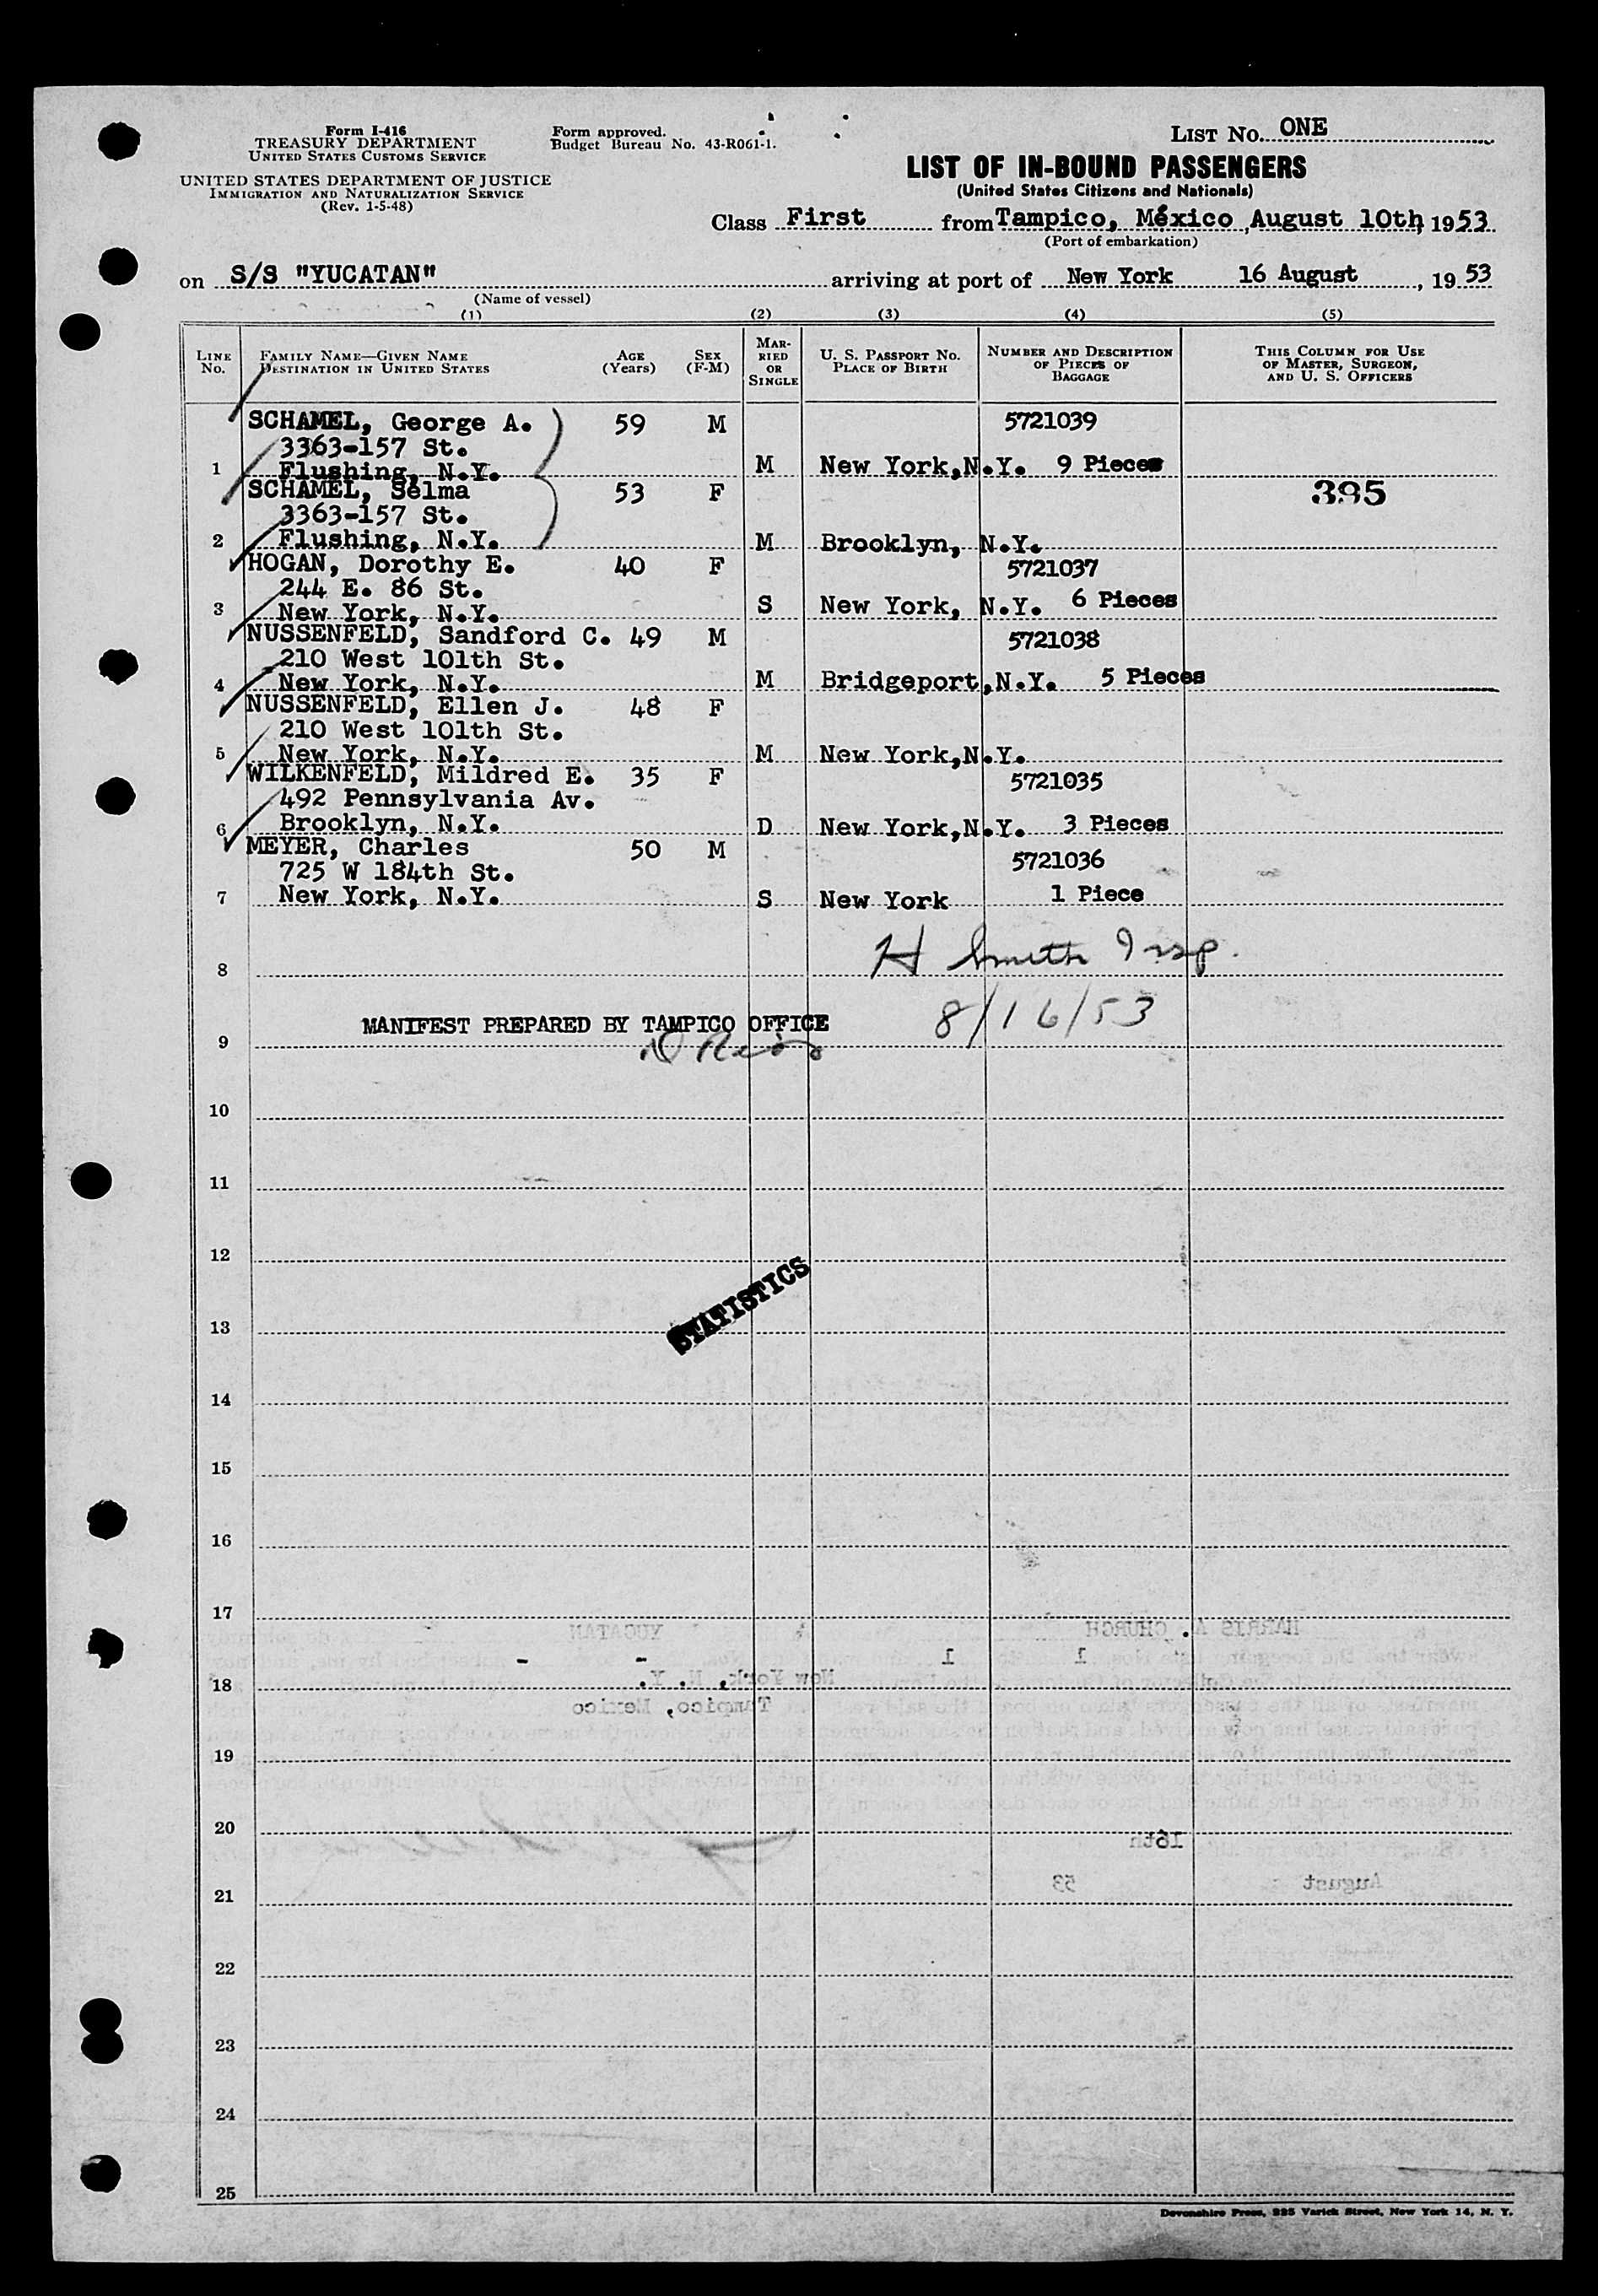 Form I-416
TREASURY DEPARTMENT
UNITED STATES CUSTOMS SERVICE
UNITED STATES DEPARTMENT OF JUSTICE
IMMIGRATION AND NATURALIZATION SERVICE
(Rev. 1-5-48)
Form approved.
Budget Bureau No. 43-R061-1.
LIST NO. ONE
LIST OF IN-BOUND PASSENGERS
(United States Citizens and Nationals)
Class First from Tampico, México, August 10th, 1953
(Port of embarkation)
on S/S "YUCATAN" arriving at port of New York 16 August, 1953
(Name of vessel)
(1) (2) (3) (4) (5)
LINE NO. FAMILY NAME—GIVEN NAME DESTINATION IN UNITED STATES AGE (YEARS) SEX (F-M) MARRIED OR SINGLE U. S. PASSPORT NO. PLACE OF BIRTH NUMBER AND DESCRIPTION OF PIECES OF BAGGAGE THIS COLUMN FOR USE OF MASTER, SURGEON, AND U. S. OFFICERS
SCHAMEL, George A. 59 M 5721039
3363-157 St.
1 Flushing, N.Y. M New York, N.Y. 9 Pieces
SCHAMEL, Selma 53 F 395
3363-157 St.
2 Flushing, N.Y. M Brooklyn, N.Y.
HOGAN, Dorothy E. 40 F 5721037
244 E. 86 St.
3 New York, N.Y. S New York, N.Y. 6 Pieces
NUSSENFELD, Sandford C. 49 M 5721038
210 West 101th St.
4 New York, N.Y. M Bridgeport, N.Y. 5 Pieces
NUSSENFELD, Ellen J. 48 F
210 West 101th St.
5 New York, N.Y. M New York, N.Y.
WILKENFELD, Mildred E. 35 F 5721035
492 Pennsylvania Av.
6 Brooklyn, N.Y. D New York, N.Y. 3 Pieces
MEYER, Charles 50 M 5721036
725 W 184th St.
7 New York, N.Y. S New York 1 Piece
8 H Smith Insp.
MANIFEST PREPARED BY TAMPICO OFFICE 8/16/53
9
10
11
12
STATISTICS
13
14
15
16
17
HARRIS A. CHURCH YUCATAN
1 1 - -
New York, N. Y.
18
Tampico, Mexico
19
20
16th
August 53
21
22
23
24
25
Devonshire Press, 225 Varick Street, New York 14, N. Y.